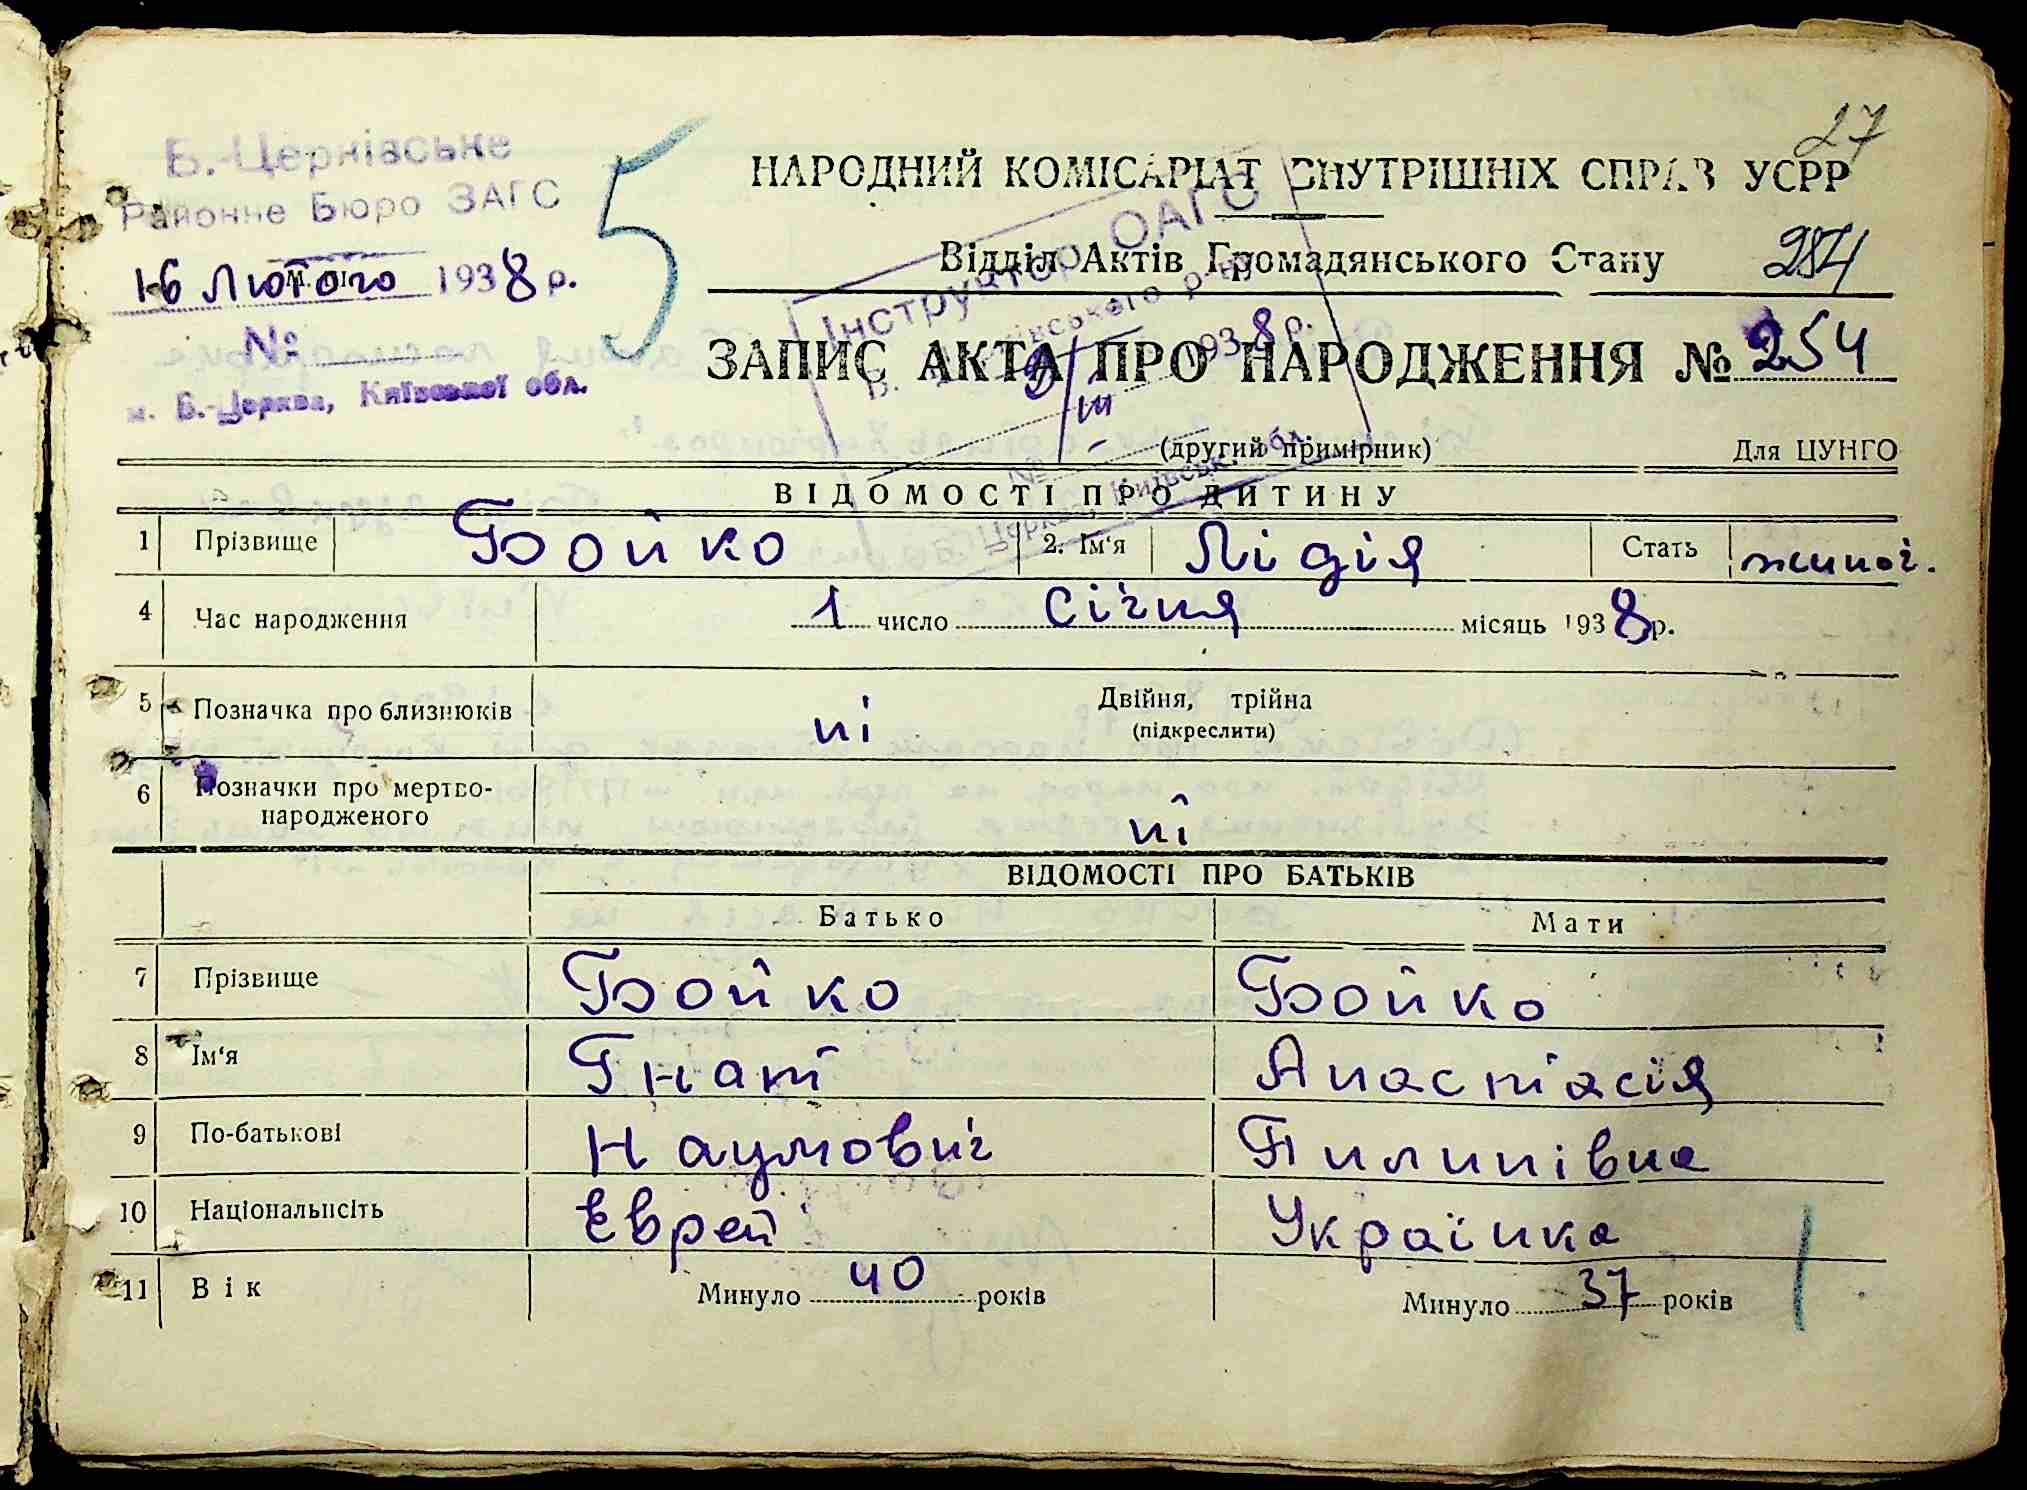 27
Б.-Церківське
Районне Бюро ЗАГС
16 Лютого 1938 р.
№
м. Б.-Церква, Київської обл.
5
НАРОДНИЙ КОМІСАРІАТ ВНУТРІШНІХ СПРАВ УСРР
Відділ Актів Громадянського Стану 284
Інструктор ОАГС
Б. Церківського р-ну
9/III 1938 р.
№
Церква, Київськ. обл.
ЗАПИС АКТА ПРО НАРОДЖЕННЯ № 254
(другий примірник) Для ЦУНГО
ВІДОМОСТІ ПРО ДИТИНУ
1 Прізвище Бойко 2. Ім'я Лідія Стать жіноч.
4 Час народження 1 число Січня місяць 1938 р.
5 Позначка про близнюків ні Двійня, трійна
(підкреслити)
6 Позначки про мертво-
народженого ні
ВІДОМОСТІ ПРО БАТЬКІВ
Батько Мати
7 Прізвище Бойко Бойко
8 Ім'я Гнат Анастасія
9 По-батькові Наумович Пилипівна
10 Національність Єврей Українка
11 Вік Минуло 40 років Минуло 37 років